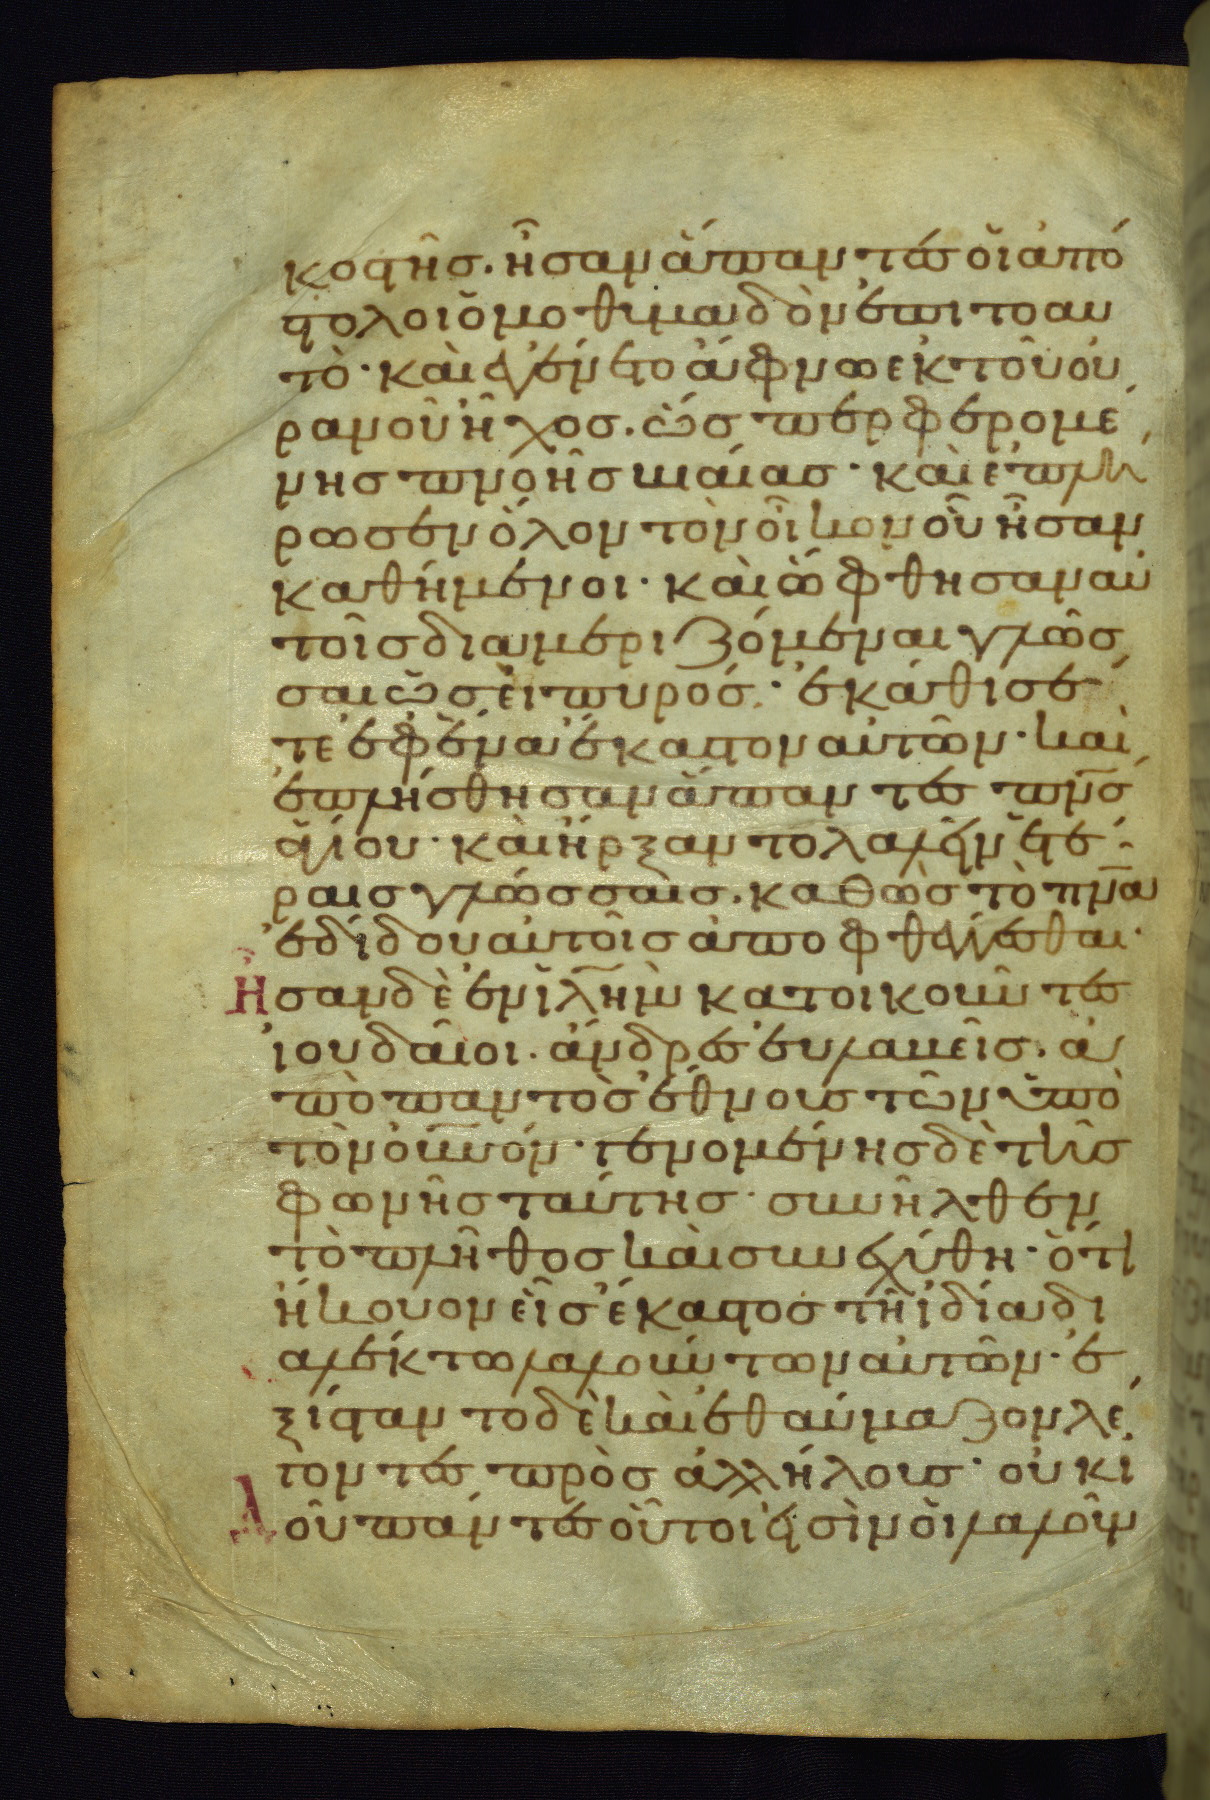 κοστῆς. ἦσαν ἅπαντες οἱ ἀπό
στολοι ὁμοθυμαδὸν ἐπι το αυ
τὸ· καὶ ἐγένετο ἄφνω εκ τοῦ οὐ
ρανοῦ ἦχος. ὥσπερ φερομέ
νης πνοῆς βιαίας· καὶ ἐπλή
ρωσεν ὅλον τὸν οἶκον οὗ ἦσαν
καθήμενοι· καὶ ὤφθησαν αὐ
τοῖς διαμεριζόμεναι γλῶσ
σαι ὡσεὶ πυρός· ἐκάθισέ
τε ἐφ ἕνα ἕκαστον αὐτῶν· καὶ
ἐπλήσθησαν ἅπαντες πν̅ς
ἁγίου· καὶ ἤρξαντο λαλεῖν ἑτέ
ραις γλώσσαις. καθὼς τὸ πν̅α
ἐδίδου αὐτοῖς ἀποφθέγγεσθαι·
Ἦσαν δὲ ἐν ϊλ̅ημ κατοικοῦντες
ἰουδαῖοι. ἄνδρες εὐλαβεῖς. ἀ
πὸ παντὸς ἔθνους τῶν ὑπὸ
τὸν οὐ̅νόν· γενομένης δὲ τῆς
φωνῆς ταύτης· συνῆλθεν
τὸ πλῆθος καὶ συνεχύθη· ὅτι
ἤκουον εἷς ἕκαστος τῆ ἰδία δι
αλέκτω λαλούντων αὐτῶν· ἐ
ξίσταντο δὲ καὶ ἐθαύμαζον λέ
γοντες πρὸς ἀλλήλους· οὐκ ϊ
Δοῦ πάντες οὗτοι εἰσὶν οἱ λαλοῦν